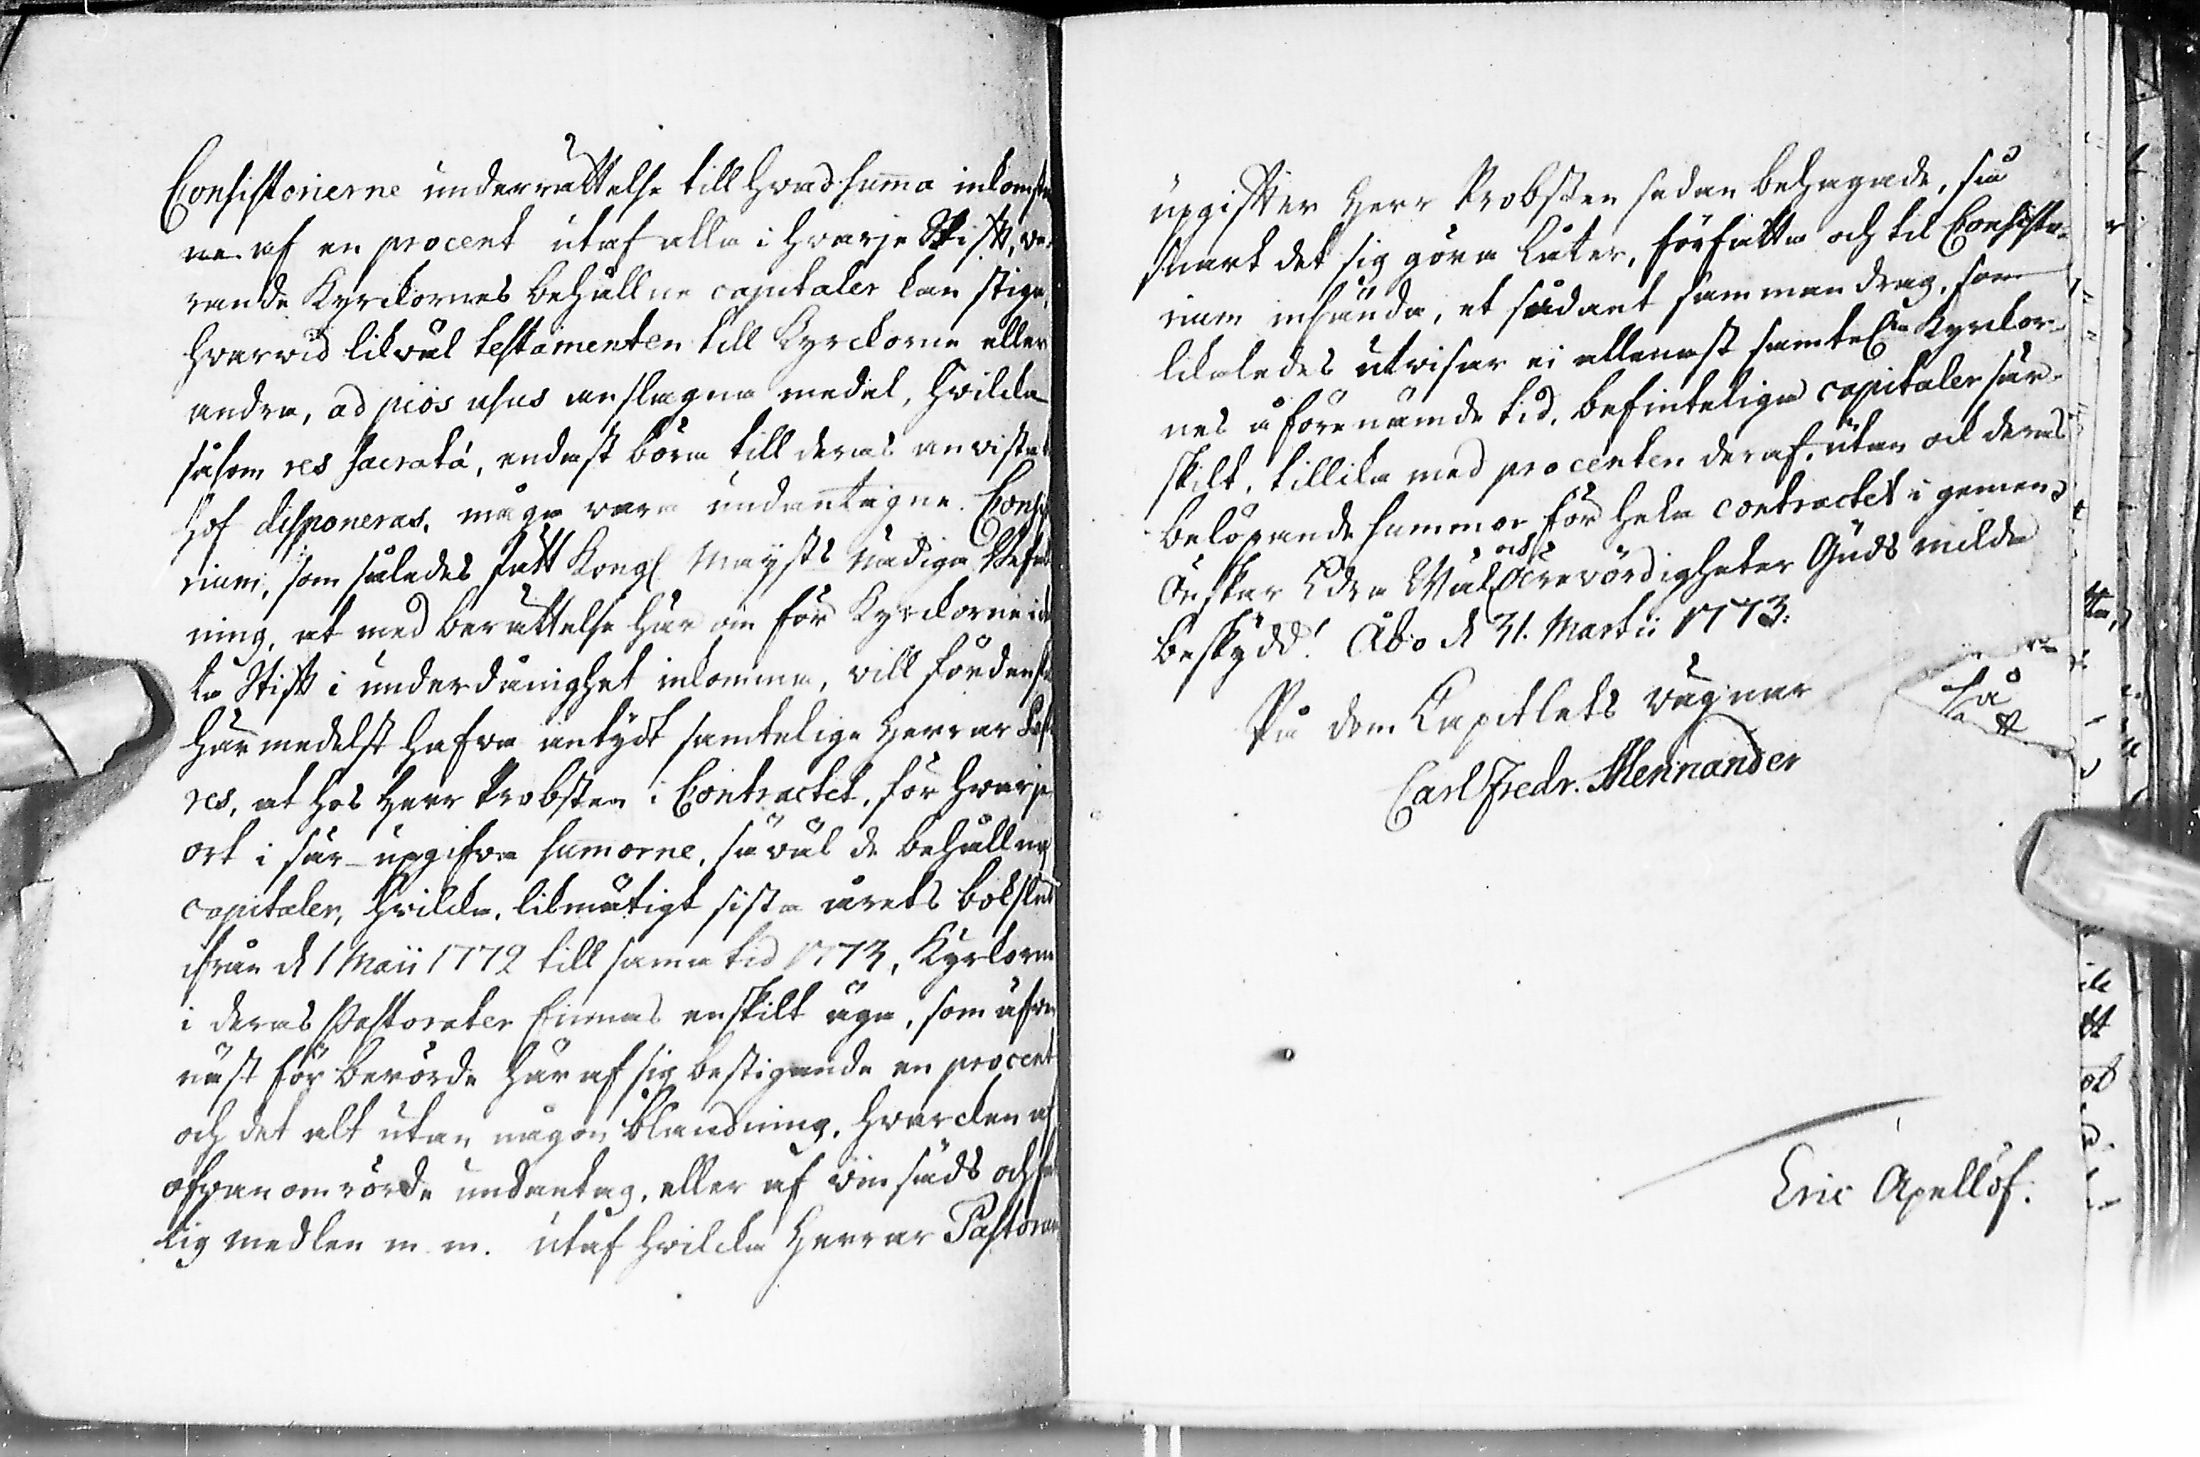 Consistorierne underrättelse till hvad summa inkomster
ne af en procent utaf alla i hvarje Stift, va-
rande Kyrckornes behållne capitaler kan stiga,
hvarvid likväl testamenten till Kyrckorne eller
andra, ad pios usus anslagna medel, hvilcka
såsom res sacrata, endast böra till deras anvista
disponeras, måga vara undantagne. Consisto
rium, som således fått Kongl Mayts Nådiga Befal
ning, at med berättelse här om för Kyrckorne i
ta Stift i underdånighet inkomma, vill fördenskull
härmedelst hafva antydt samtelige Herrar Pasto
res, at hos Herr Probsten i Contractet, för hvarje
ort i sär upgifva summorne, såväl de behållne
capitaler, hvilcka, likmätigt sista årets bokslut
ifrån d 1 Maii 1772 till samma tid 1773, Kyrkorne
i deras Pastorater finnas enskilt äga, som äfven
näst för berörde här af sig bestigande en procent
och det alt utan någon blandning, hvarcken af
ofvanomrörde undantag, eller af vin säds och
tig medlen m. m. Utaf hvilcka Herrar Pastorum
upgifter Herr Probsten sedan behagade, så
snart det sig göra låter, författa och til Consisto-
rium insända, et sådant sammandrag, som
likaledes utvisar ei allenast samtel. Kyrckor-
nes å förenämde tid, befintelige capitaler sär-
skilt, tillika med procenten deraf, utan ock deras
belöpande summor för hela contractet i gemen.
Önskar Eder Wäl Ärevördigheter Guds milda
beskydd! Åbo d 31. Martii 1773.
På dom Capitlets vägnar
Carl Fredr. Mennander
Eric Apellöf.